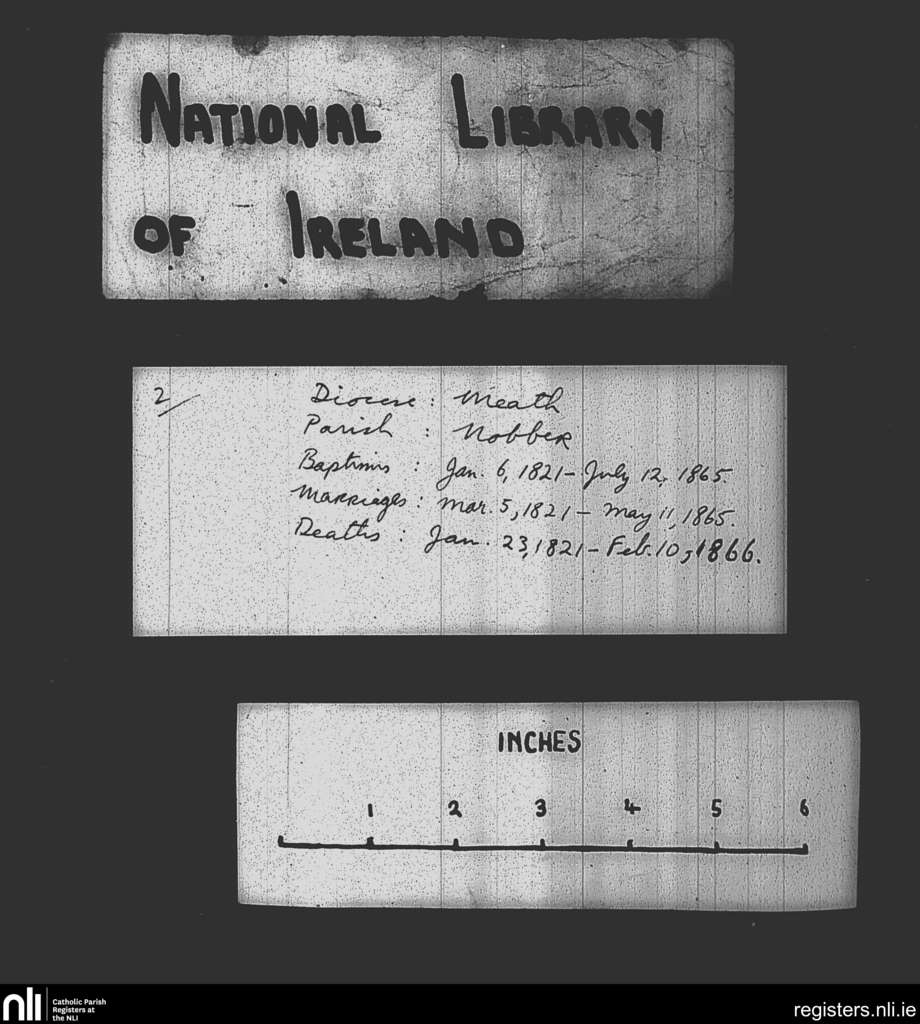 NATIONAL LIBRARY
OF IRELAND
2/
Diocese : Meath
Parish : Nobber
Baptisms : Jan. 6, 1821 - July 12, 1865.
Marriages : Mar. 5, 1821 - May 11, 1865.
Deaths : Jan. 23, 1821 - Feb. 10, 1866.
INCHES
1 2 3 4 5 6
nli
Catholic Parish
Registers at
the NLI
registers.nli.ie